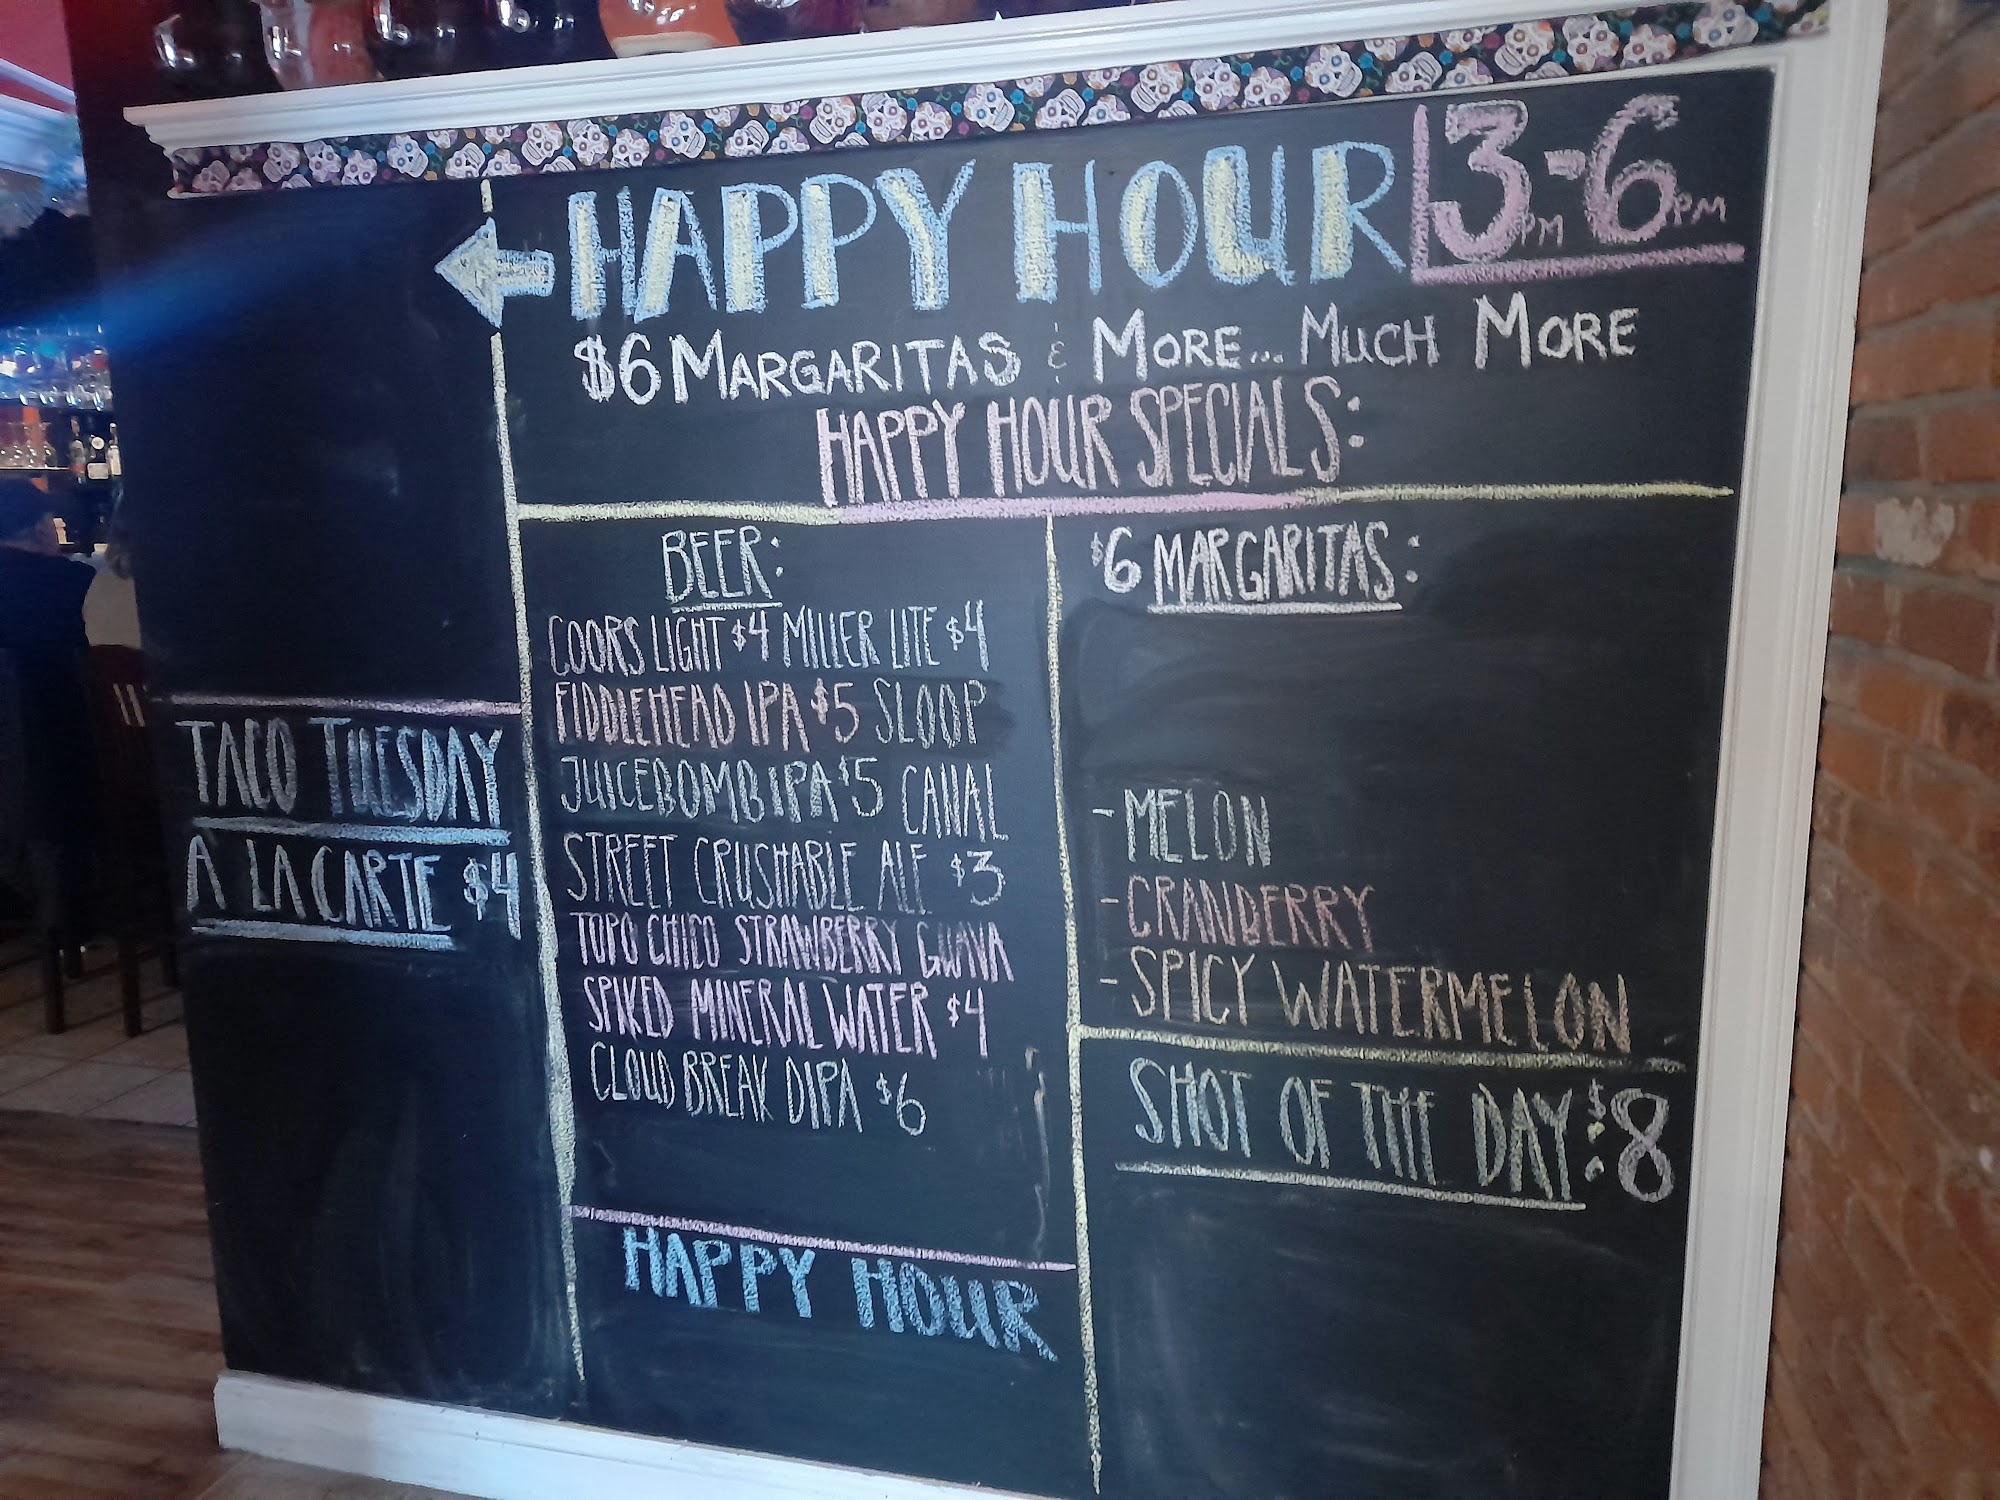 HAPPY HOUR 3PM-6PM
$6 MARGARITAS & MORE... MUCH MORE
HAPPY HOUR SPECIALS:
TACO TUESDAY
A LA CARTE $4
BEER:
COORS LIGHT $4 MILLER LITE $4
FIDDLEHEAD IPA $5 SLOOP
JUICEBOMB IPA $5 CANAL
STREET CRUSHABLE ALE $3
TOPO CHICO STRAWBERRY GUAVA
SPIKED MINERAL WATER $4
CLOUD BREAK DIPA $6
HAPPY HOUR
$6 MARGARITAS:
- MELON
- CRANBERRY
- SPICY WATERMELON
SHOT OF THE DAY: $8